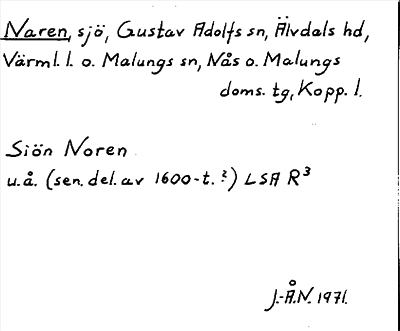 Naren, sjö, Gustav Adolfs sn, Älvdals hd,
Värml. l. o. Malungs sn, Nås o. Malungs
doms. tg, Kopp. l.
Siön Noren
u.å. (sen. del. av 1600-t.?) LSA R³
J.-Å.N. 1971.